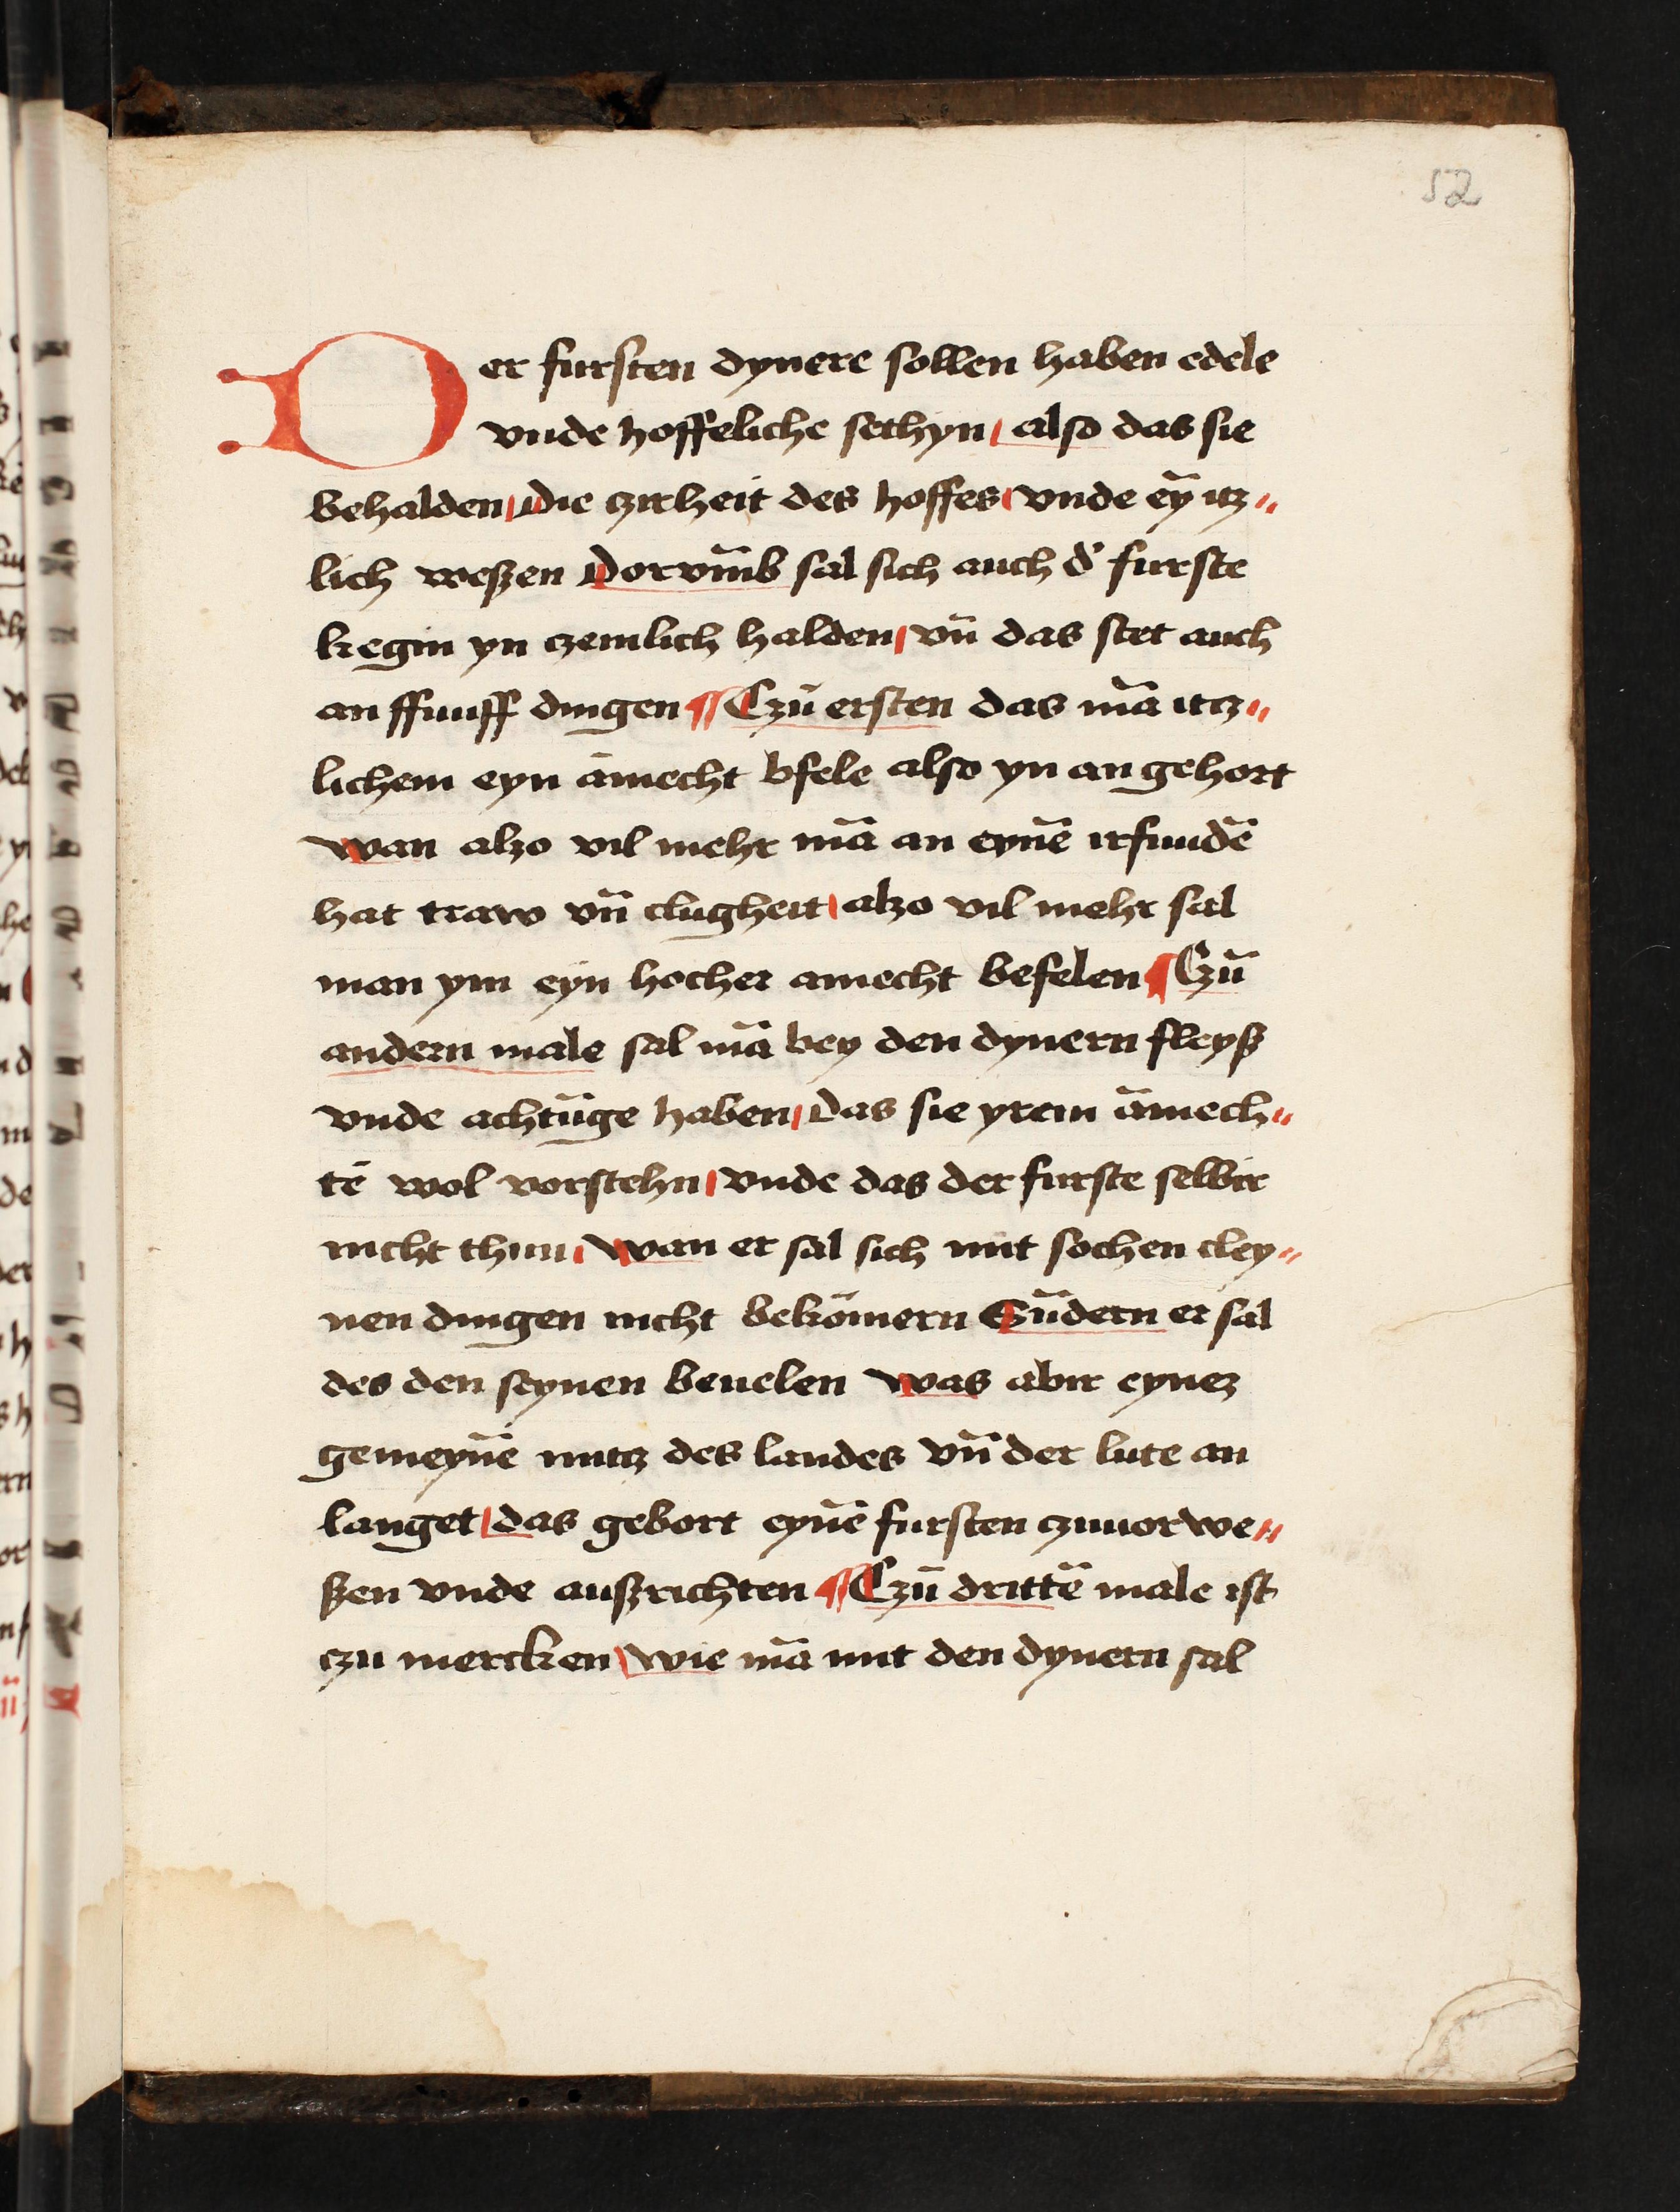 52
Der fursten dynere sollen haben edele
vnde hoffeliche sethyn / also das sie
behalden / die czirheit des hoffes / vnde eȳ itz„
lich weßen Dorvm̄b sal sich auch d' furste
kegin yn czemlich halden / vn̄ das stet auch
an ffunff dingen ¶ Czū ersten das mā itcz„
lichem eyn āmecht bfele also yn an gehort
wan alzo vil mehr mā an eynē irfundē
hat traw vn̄ clugheit / alzo vil mehr sal
man ym eyn hocher amecht befelen ¶ Czū
andern male sal mā bey den dynern fleyß
vnde achtūge haben / das sie yrem āmech„
tē wol vorstehn / vnde das der furste selbir
nicht thun / wan er sal sich mit sochen cley„
nen dingen nicht bekōmern Sūdern er sal
des den seynen beuelen was abir eynez
gemeynē nutcz des landes vn̄ der lute an
langet / das gebort eynē fursten czuuorwe„
ßen vnde außrichten ¶ Czū drittē male ist
czu mercken / wie mā mit den dynern sal